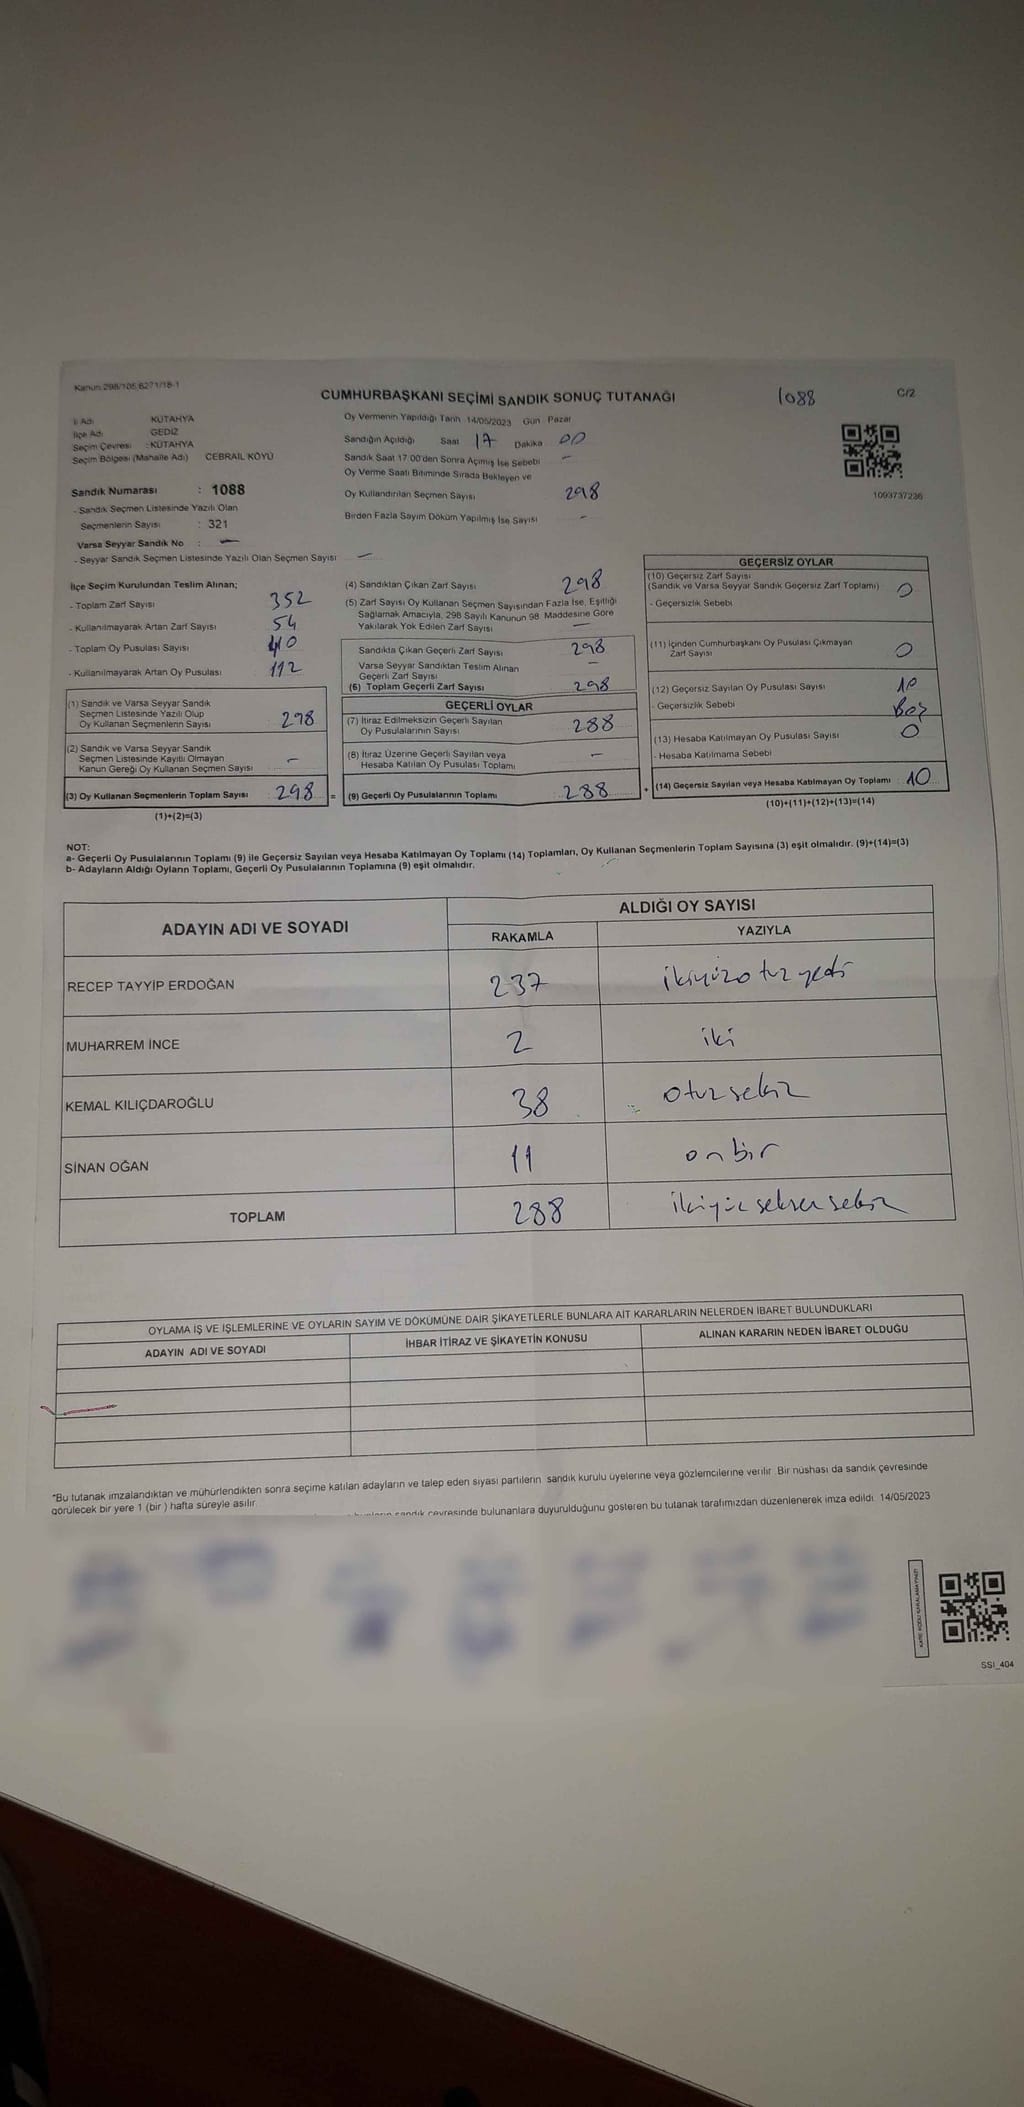 Kanun:298/105,6271/18-1
CUMHURBAŞKANI SEÇİMİ SANDIK SONUÇ TUTANAĞI
1088
C/2
İl Adı KÜTAHYA
İlçe Adı GEDİZ
Seçim Çevresi : KÜTAHYA
Seçim Bölgesi (Mahalle Adı) CEBRAİL KÖYÜ
Sandık Numarası : 1088
- Sandık Seçmen Listesinde Yazılı Olan
Seçmenlerin Sayısı : 321
Varsa Seyyar Sandık No : -
- Seyyar Sandık Seçmen Listesinde Yazılı Olan Seçmen Sayısı -
Oy Vermenin Yapıldığı Tarih 14/05/2023 Gün Pazar
Sandığın Açıldığı Saat 17 Dakika 00
Sandık Saat 17.00'den Sonra Açımış İse Sebebi -
Oy Verme Saati Bitiminde Sırada Bekleyen ve
Oy Kullandırılan Seçmen Sayısı 298
Birden Fazla Sayım Döküm Yapılmış İse Sayısı -
1093737236
İlçe Seçim Kurulundan Teslim Alınan;
- Toplam Zarf Sayısı 352
- Kullanılmayarak Artan Zarf Sayısı 54
- Toplam Oy Pusulası Sayısı 410
- Kullanılmayarak Artan Oy Pusulası 112
(1) Sandık ve Varsa Seyyar Sandık
Seçmen Listesinde Yazılı Olup
Oy Kullanan Seçmenlerin Sayısı 298
(2) Sandık ve Varsa Seyyar Sandık
Seçmen Listesinde Kayıtlı Olmayan
Kanun Gereği Oy Kullanan Seçmen Sayısı -
(3) Oy Kullanan Seçmenlerin Toplam Sayısı 298 =
(1)+(2)=(3)
(4) Sandıktan Çıkan Zarf Sayısı 298
(5) Zarf Sayısı Oy Kullanan Seçmen Sayısından Fazla İse, Eşitliği
Sağlamak Amacıyla, 298 Sayılı Kanunun 98. Maddesine Göre
Yakılarak Yok Edilen Zarf Sayısı -
Sandıkta Çıkan Geçerli Zarf Sayısı 298
Varsa Seyyar Sandıktan Teslim Alınan
Geçerli Zarf Sayısı -
(6) Toplam Geçerli Zarf Sayısı 298
GEÇERLİ OYLAR
(7) İtiraz Edilmeksizin Geçerli Sayılan
Oy Pusulalarının Sayısı 288
(8) İtiraz Üzerine Geçerli Sayılan veya
Hesaba Katılan Oy Pusulası Toplamı -
(9) Geçerli Oy Pusulalarının Toplamı 288 +
GEÇERSİZ OYLAR
(10) Geçersiz Zarf Sayısı
(Sandık ve Varsa Seyyar Sandık Geçersiz Zarf Toplamı) 0
- Geçersizlik Sebebi
(11) İçinden Cumhurbaşkanı Oy Pusulası Çıkmayan
Zarf Sayısı 0
(12) Geçersiz Sayılan Oy Pusulası Sayısı 10
- Geçersizlik Sebebi Boş
(13) Hesaba Katılmayan Oy Pusulası Sayısı 0
- Hesaba Katılmama Sebebi
(14) Geçersiz Sayılan veya Hesaba Katılmayan Oy Toplamı 10
(10)+(11)+(12)+(13)=(14)
NOT:
a- Geçerli Oy Pusulalarının Toplamı (9) ile Geçersiz Sayılan veya Hesaba Katılmayan Oy Toplamı (14) Toplamları, Oy Kullanan Seçmenlerin Toplam Sayısına (3) eşit olmalıdır. (9)+(14)=(3)
b- Adayların Aldığı Oyların Toplamı, Geçerli Oy Pusulalarının Toplamına (9) eşit olmalıdır.
ADAYIN ADI VE SOYADI
ALDIĞI OY SAYISI
RAKAMLA YAZIYLA
RECEP TAYYİP ERDOĞAN 237 ikiyüzotuzyedi
MUHARREM İNCE 2 iki
KEMAL KILIÇDAROĞLU 38 otuzsekiz
SİNAN OĞAN 11 onbir
TOPLAM 288 ikiyüzseksensekiz
OYLAMA İŞ VE İŞLEMLERİNE VE OYLARIN SAYIM VE DÖKÜMÜNE DAİR ŞİKAYETLERLE BUNLARA AİT KARARLARIN NELERDEN İBARET BULUNDUKLARI
ADAYIN ADI VE SOYADI İHBAR İTİRAZ VE ŞİKAYETİN KONUSU ALINAN KARARIN NEDEN İBARET OLDUĞU
*Bu tutanak imzalandıktan ve mühürlendikten sonra seçime katılan adayların ve talep eden siyasi partilerin sandık kurulu üyelerine veya gözlemcilerine verilir. Bir nüshası da sandık çevresinde
görülecek bir yere 1 (bir ) hafta süreyle asılır.
sandık çevresinde bulunanlara duyurulduğunu gösteren bu tutanak tarafımızdan düzenlenerek imza edildi. 14/05/2023
KARE KODU KARALAMAYINIZ!
SSI_404